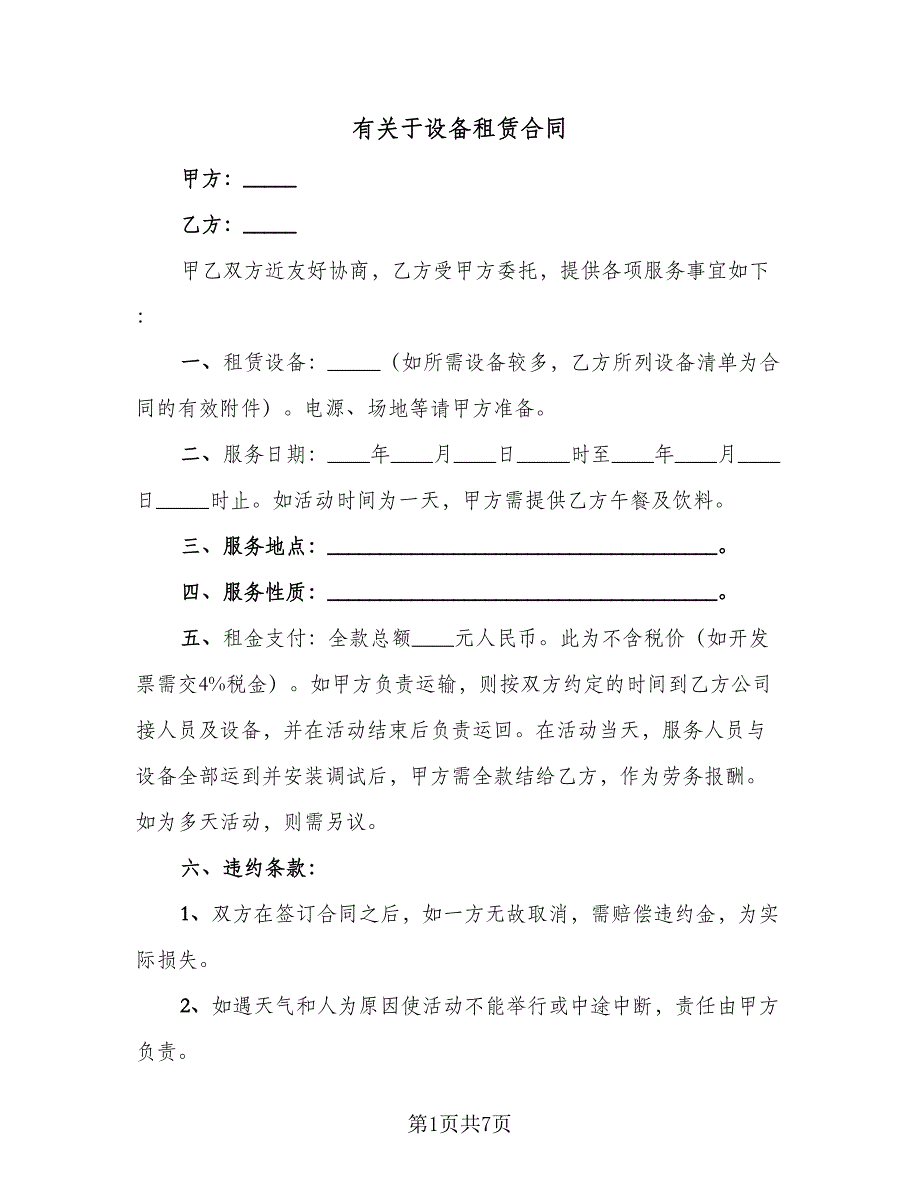 有关于设备租赁合同
甲方：_____
乙方：_____
甲乙双方近友好协商，乙方受甲方委托，提供各项服务事宜如下
：
一、租赁设备：_____（如所需设备较多，乙方所列设备清单为合
同的有效附件）。电源、场地等请甲方准备。
二、服务日期：____年____月____日_____时至____年____月____
日_____时止。如活动时间为一天，甲方需提供乙方午餐及饮料。
三、服务地点：_____________________________________。
四、服务性质：_____________________________________。
五、租金支付：全款总额____元人民币。此为不含税价（如开发
票需交4%税金）。如甲方负责运输，则按双方约定的时间到乙方公司
接人员及设备，并在活动结束后负责运回。在活动当天，服务人员与
设备全部运到并安装调试后，甲方需全款结给乙方，作为劳务报酬。
如为多天活动，则需另议。
六、违约条款：
1、双方在签订合同之后，如一方无故取消，需赔偿违约金，为实
际损失。
2、如遇天气和人为原因使活动不能举行或中途中断，责任由甲方
负责。
第1页共7页